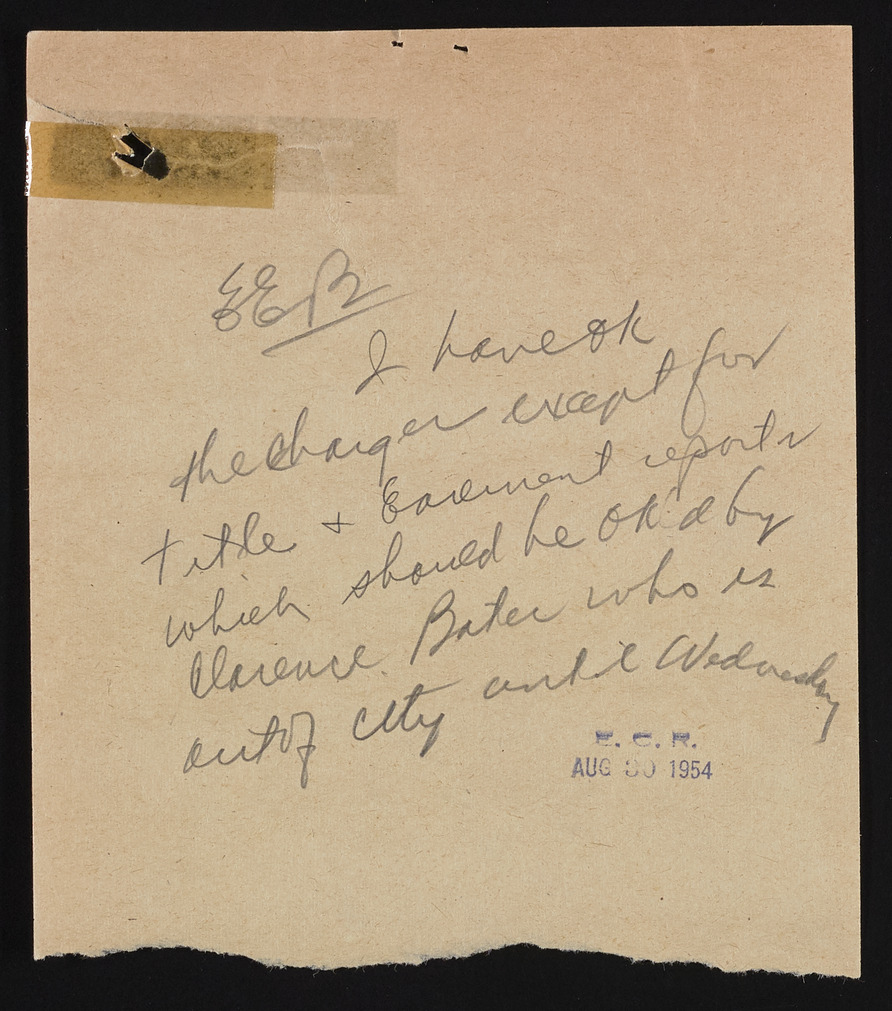 EEB
I have ok
the charges except for
title + Easement reports
which should be OK'd by
Clarence Bates who is
out of city until Wednesday
E. C. R.
AUG 30 1954